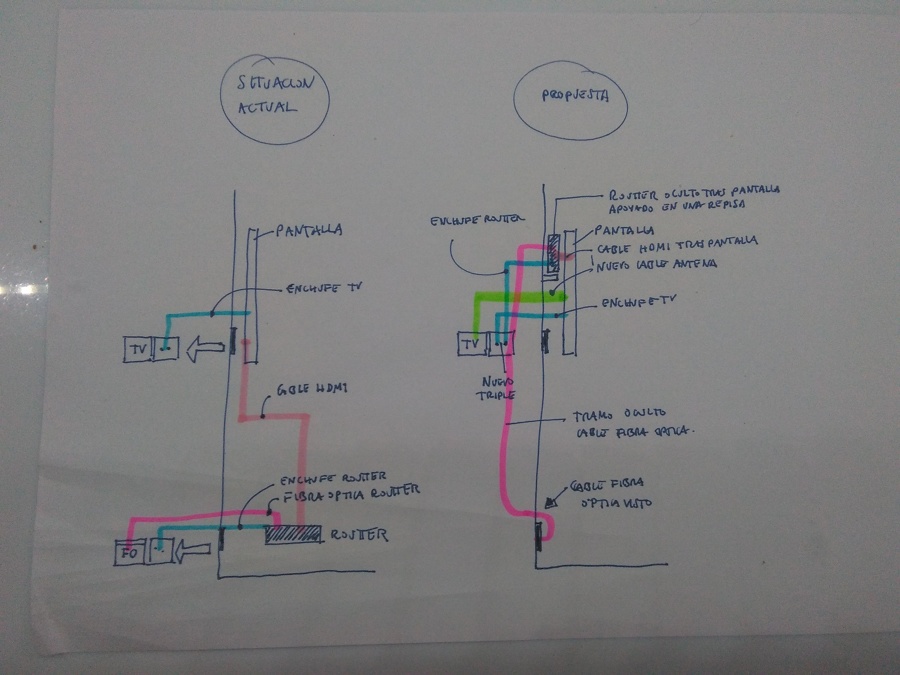 SITUACION
ACTUAL
PANTALLA
ENCHUFE TV
TV
CABLE HDMI
ENCHUFE ROUTER
FIBRA OPTICA ROUTER
FO
ROUTER
PROPUESTA
ROUTER OCULTO TRAS PANTALLA
APOYADO EN UNA REPISA
ENCHUFE ROUTER
PANTALLA
CABLE HDMI TRAS PANTALLA
NUEVO CABLE ANTENA
ENCHUFE TV
TV
NUEVO
TRIPLE
TRAMO OCULTO
CABLE FIBRA OPTICA.
CABLE FIBRA
OPTICA VISTO